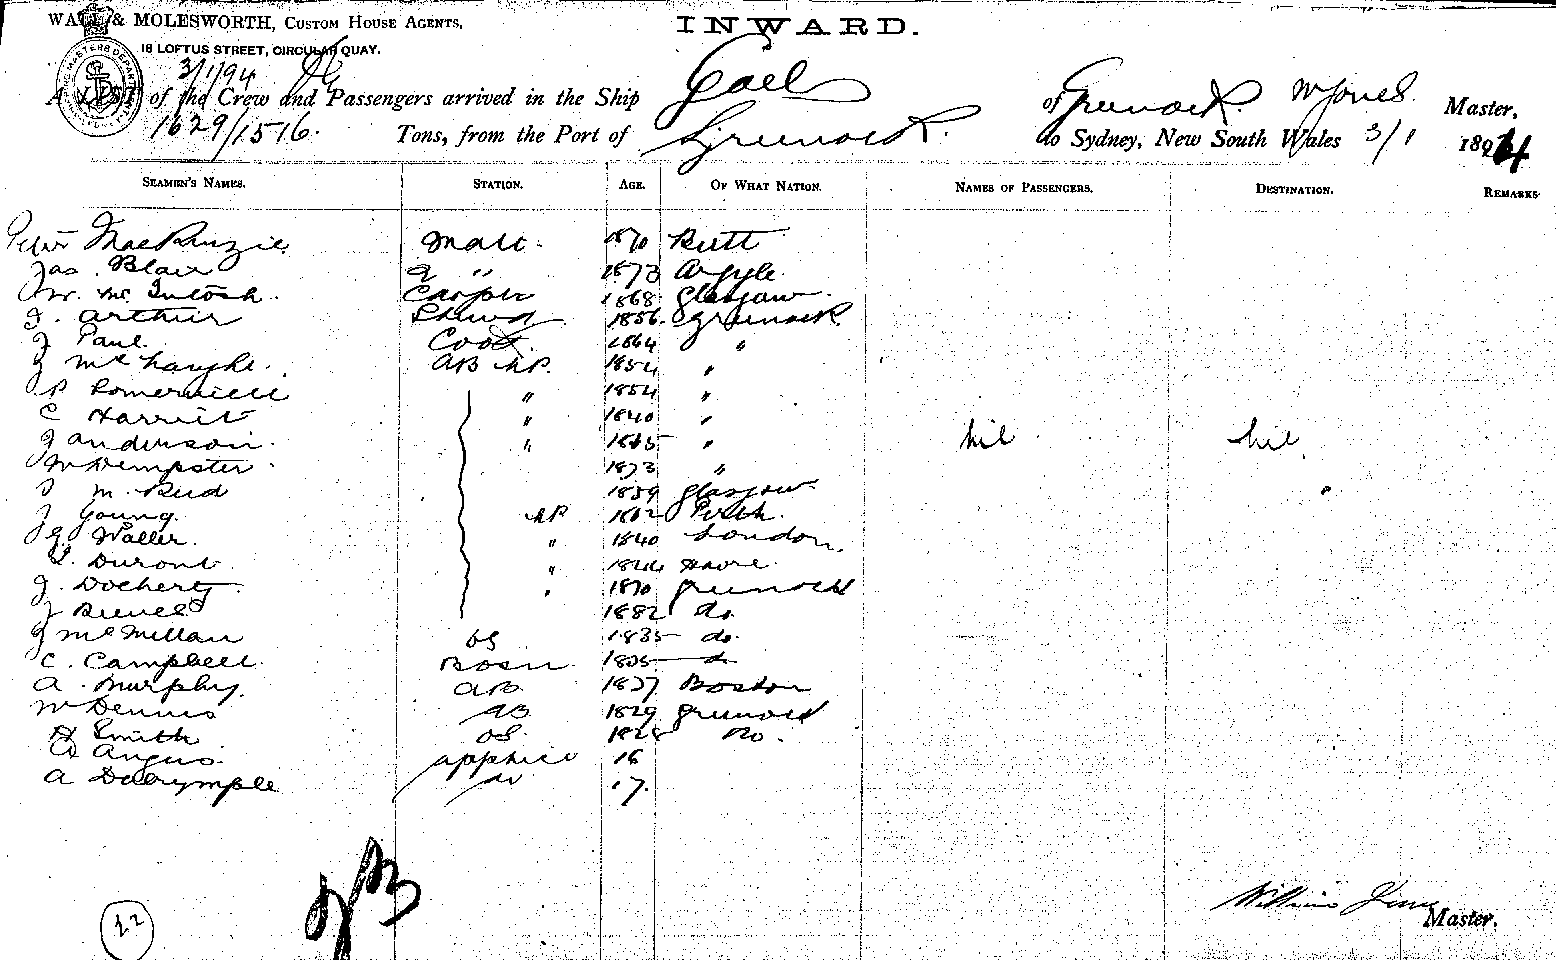 WALL & MOLESWORTH, CUSTOM HOUSE AGENTS,
INWARD.
18 LOFTUS STREET, CIRCULAR QUAY.
3/1/94
A LIST of the Crew and Passengers arrived in the Ship Gael of Greenock W Jones Master,
1629/1516. Tons, from the Port of Greenock to Sydney, New South Wales 3/1 1894
SEAMEN'S NAMES. STATION. AGE. OF WHAT NATION. NAMES OF PASSENGERS. DESTINATION. REMARKS
Peter MacKenzie Mate 1870
Jas. Blair 2 " 1873 Argyle
Wr. Mc Intosh. Carper 1868 Glasgow
J. Arthur Stewd 1856 Greenock
J Paul Cook 1864 "
J Mc AB 1854 "
P Somerville " 1854 "
C " 1840 "
J Anderson " 1865 " Nil Nil
W Dempster 1873 "
J M. Reid 1859 Glasgow
J Young 1862 Perth.
J G Waller. " 1840 London.
L. Duront " Havre
J. Docherty " 1870 Greenock
J 1882 do
J McMillan OS 1835 do.
C. Campbell Bosn do
A. Murphy. AB 1837 Boston
W Dennis AB 1829 Greenock
H Smith OS Do.
Angus 16
A Dalrymple do 17.
William Jones
Master.
22